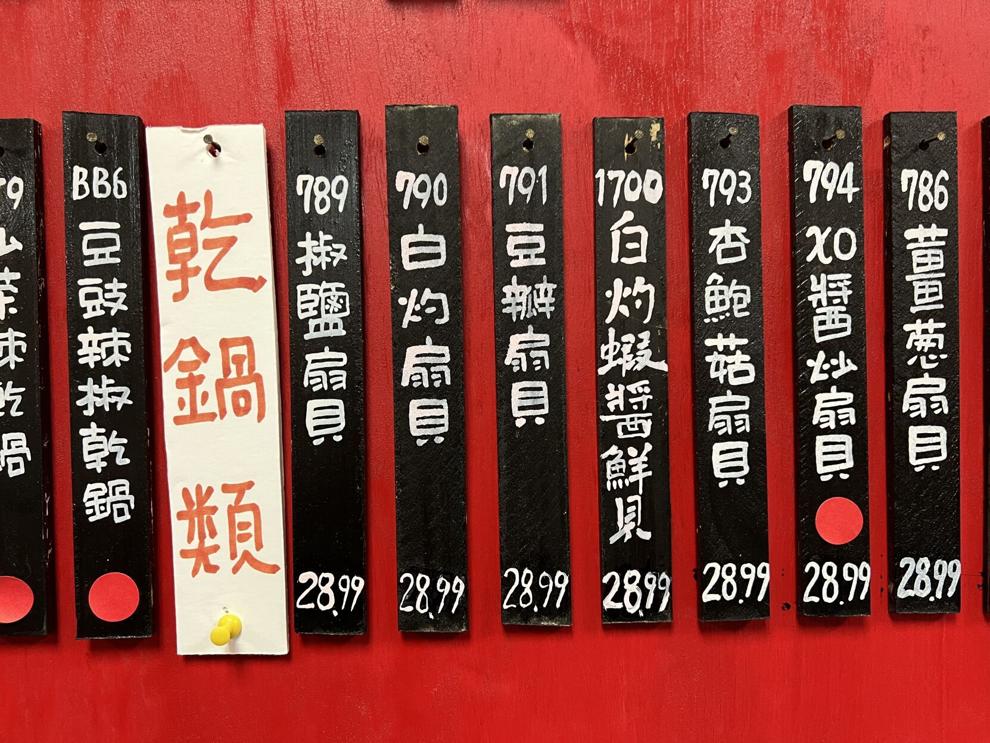 BB6
豆豉辣椒乾鍋
乾鍋類
789
椒鹽扇貝
28.99
790
白灼扇貝
28.99
791
豆瓣扇貝
28.99
1700
白灼蝦醬鮮貝
28.99
793
杏鮑菇扇貝
28.99
794
XO醬炒扇貝
28.99
786
薑葱扇貝
28.99